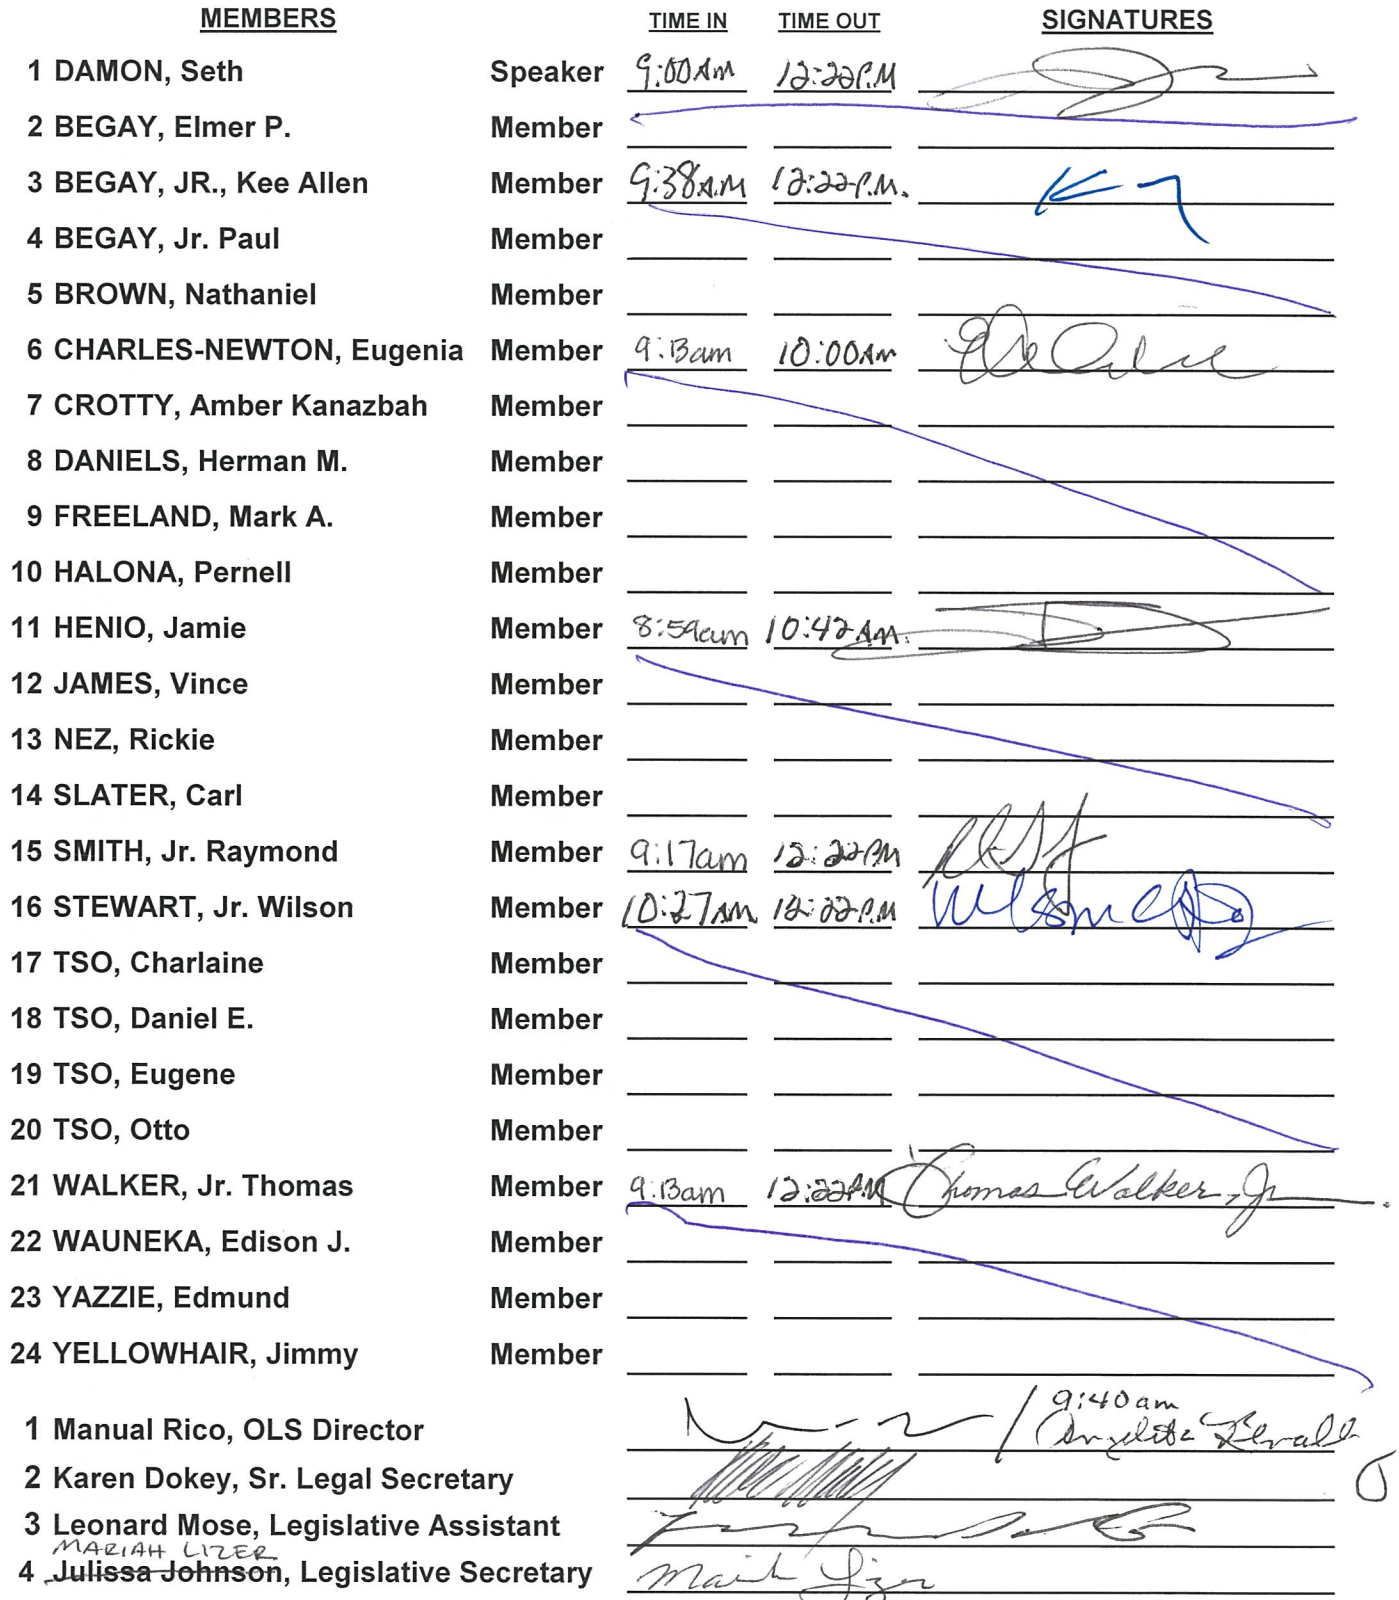 MEMBERS TIME IN TIME OUT SIGNATURES
1 DAMON, Seth Speaker 9:00AM 12:22P.M
2 BEGAY, Elmer P. Member
3 BEGAY, JR., Kee Allen Member 9:38A.M 12:22P.M.
4 BEGAY, Jr. Paul Member
5 BROWN, Nathaniel Member
6 CHARLES-NEWTON, Eugenia Member 9:13am 10:00AM
7 CROTTY, Amber Kanazbah Member
8 DANIELS, Herman M. Member
9 FREELAND, Mark A. Member
10 HALONA, Pernell Member
11 HENIO, Jamie Member 8:59am 10:42AM.
12 JAMES, Vince Member
13 NEZ, Rickie Member
14 SLATER, Carl Member
15 SMITH, Jr. Raymond Member 9:17am 12:22PM
16 STEWART, Jr. Wilson Member 10:27AM 12:22P.M Wilson
17 TSO, Charlaine Member
18 TSO, Daniel E. Member
19 TSO, Eugene Member
20 TSO, Otto Member
21 WALKER, Jr. Thomas Member 9:13am 12:22PM Thomas Walker, Jr.
22 WAUNEKA, Edison J. Member
23 YAZZIE, Edmund Member
24 YELLOWHAIR, Jimmy Member
9:40am
1 Manual Rico, OLS Director / Angelita
2 Karen Dokey, Sr. Legal Secretary
3 Leonard Mose, Legislative Assistant
MARIAH LIZER
4 Julissa Johnson, Legislative Secretary Mariah Lizer